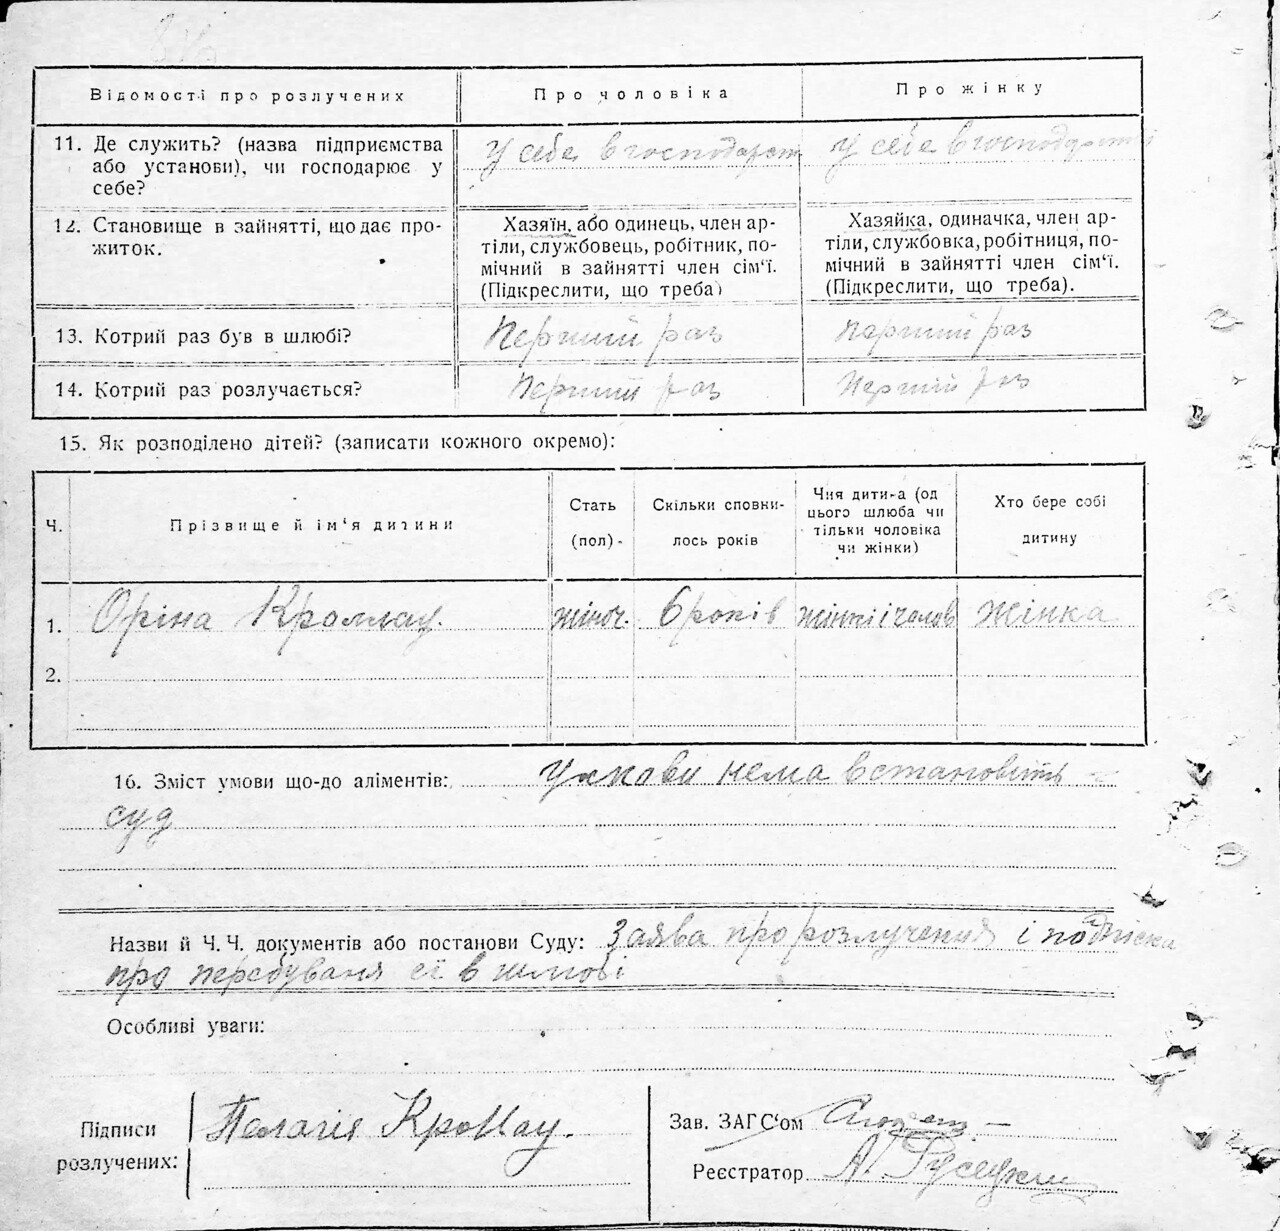 Відомості про розлучених
Про чоловіка
Про жінку
11. Де служить? (назва підприємства
або установи), чи господарює у
себе?
У себе в господарст
У себе в господарстві
12. Становище в зайнятті, що дає про-
житок.
Хазяїн, або одинець, член ар-
тіли, службовець, робітник, по-
мічний в зайнятті член сім‘ї.
(Підкреслити, що треба)
Хазяйка, одиначка, член ар-
тіли, службовка, робітниця, по-
мічний в зайнятті член сім‘ї.
(Підкреслити, що треба).
13. Котрий раз був в шлюбі?
Перший раз
Перший раз
14. Котрий раз розлучається?
Перший раз
Перший раз
15. Як розподілено дітей? (записати кожного окремо):
Ч.
Прізвище й ім‘я дитини
Стать
(пол)
Скільки сповни-
лось років
Чия дити-а (од
цього шлюба чи
тільки чоловіка
чи жінки)
Хто бере собі
дитину
1. Оріна Кромпау. жіноч. 6 років жінкі і чолов жінка
2.
16. Зміст умови що-до аліментів: Умови нема встановить
суд
Назви й Ч. Ч. документів або постанови Суду: Заява про розлучення і подпіска
про перебуваня єї в шлюбі
Особливі уваги:
Підписи
розлучених:
Пелагія
Зав. ЗАГС‘ом
Реєстратор А.